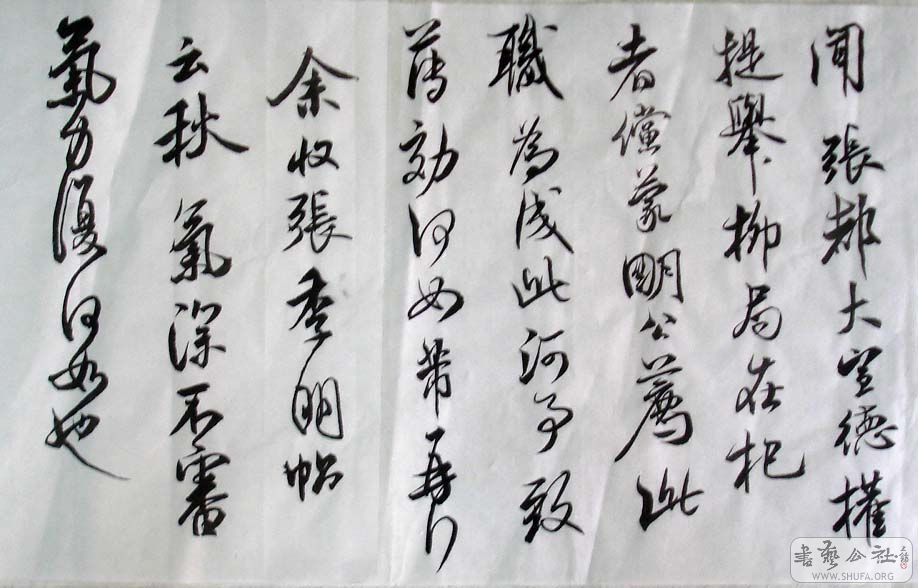 聞張都大宣德權
提舉柳局在杞
者儻蒙明公薦此
職為成此河事致
薄効何如芾再行
余收張季明帖
云秋氣深不審
氣力復何如也
書藝公社
WWW.SHUFA.ORG